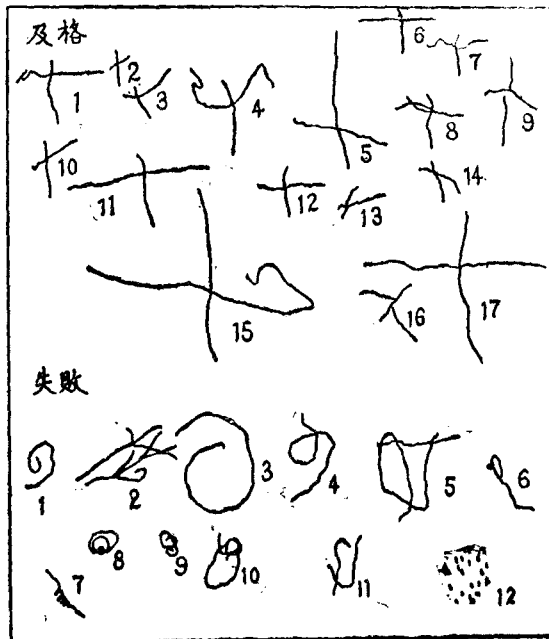 及格
6
7
1
2
3
4
5
8
9
10
11
12
13
14
15
16
17
失敗
1
2
3
4
5
6
7
8
9
10
11
12